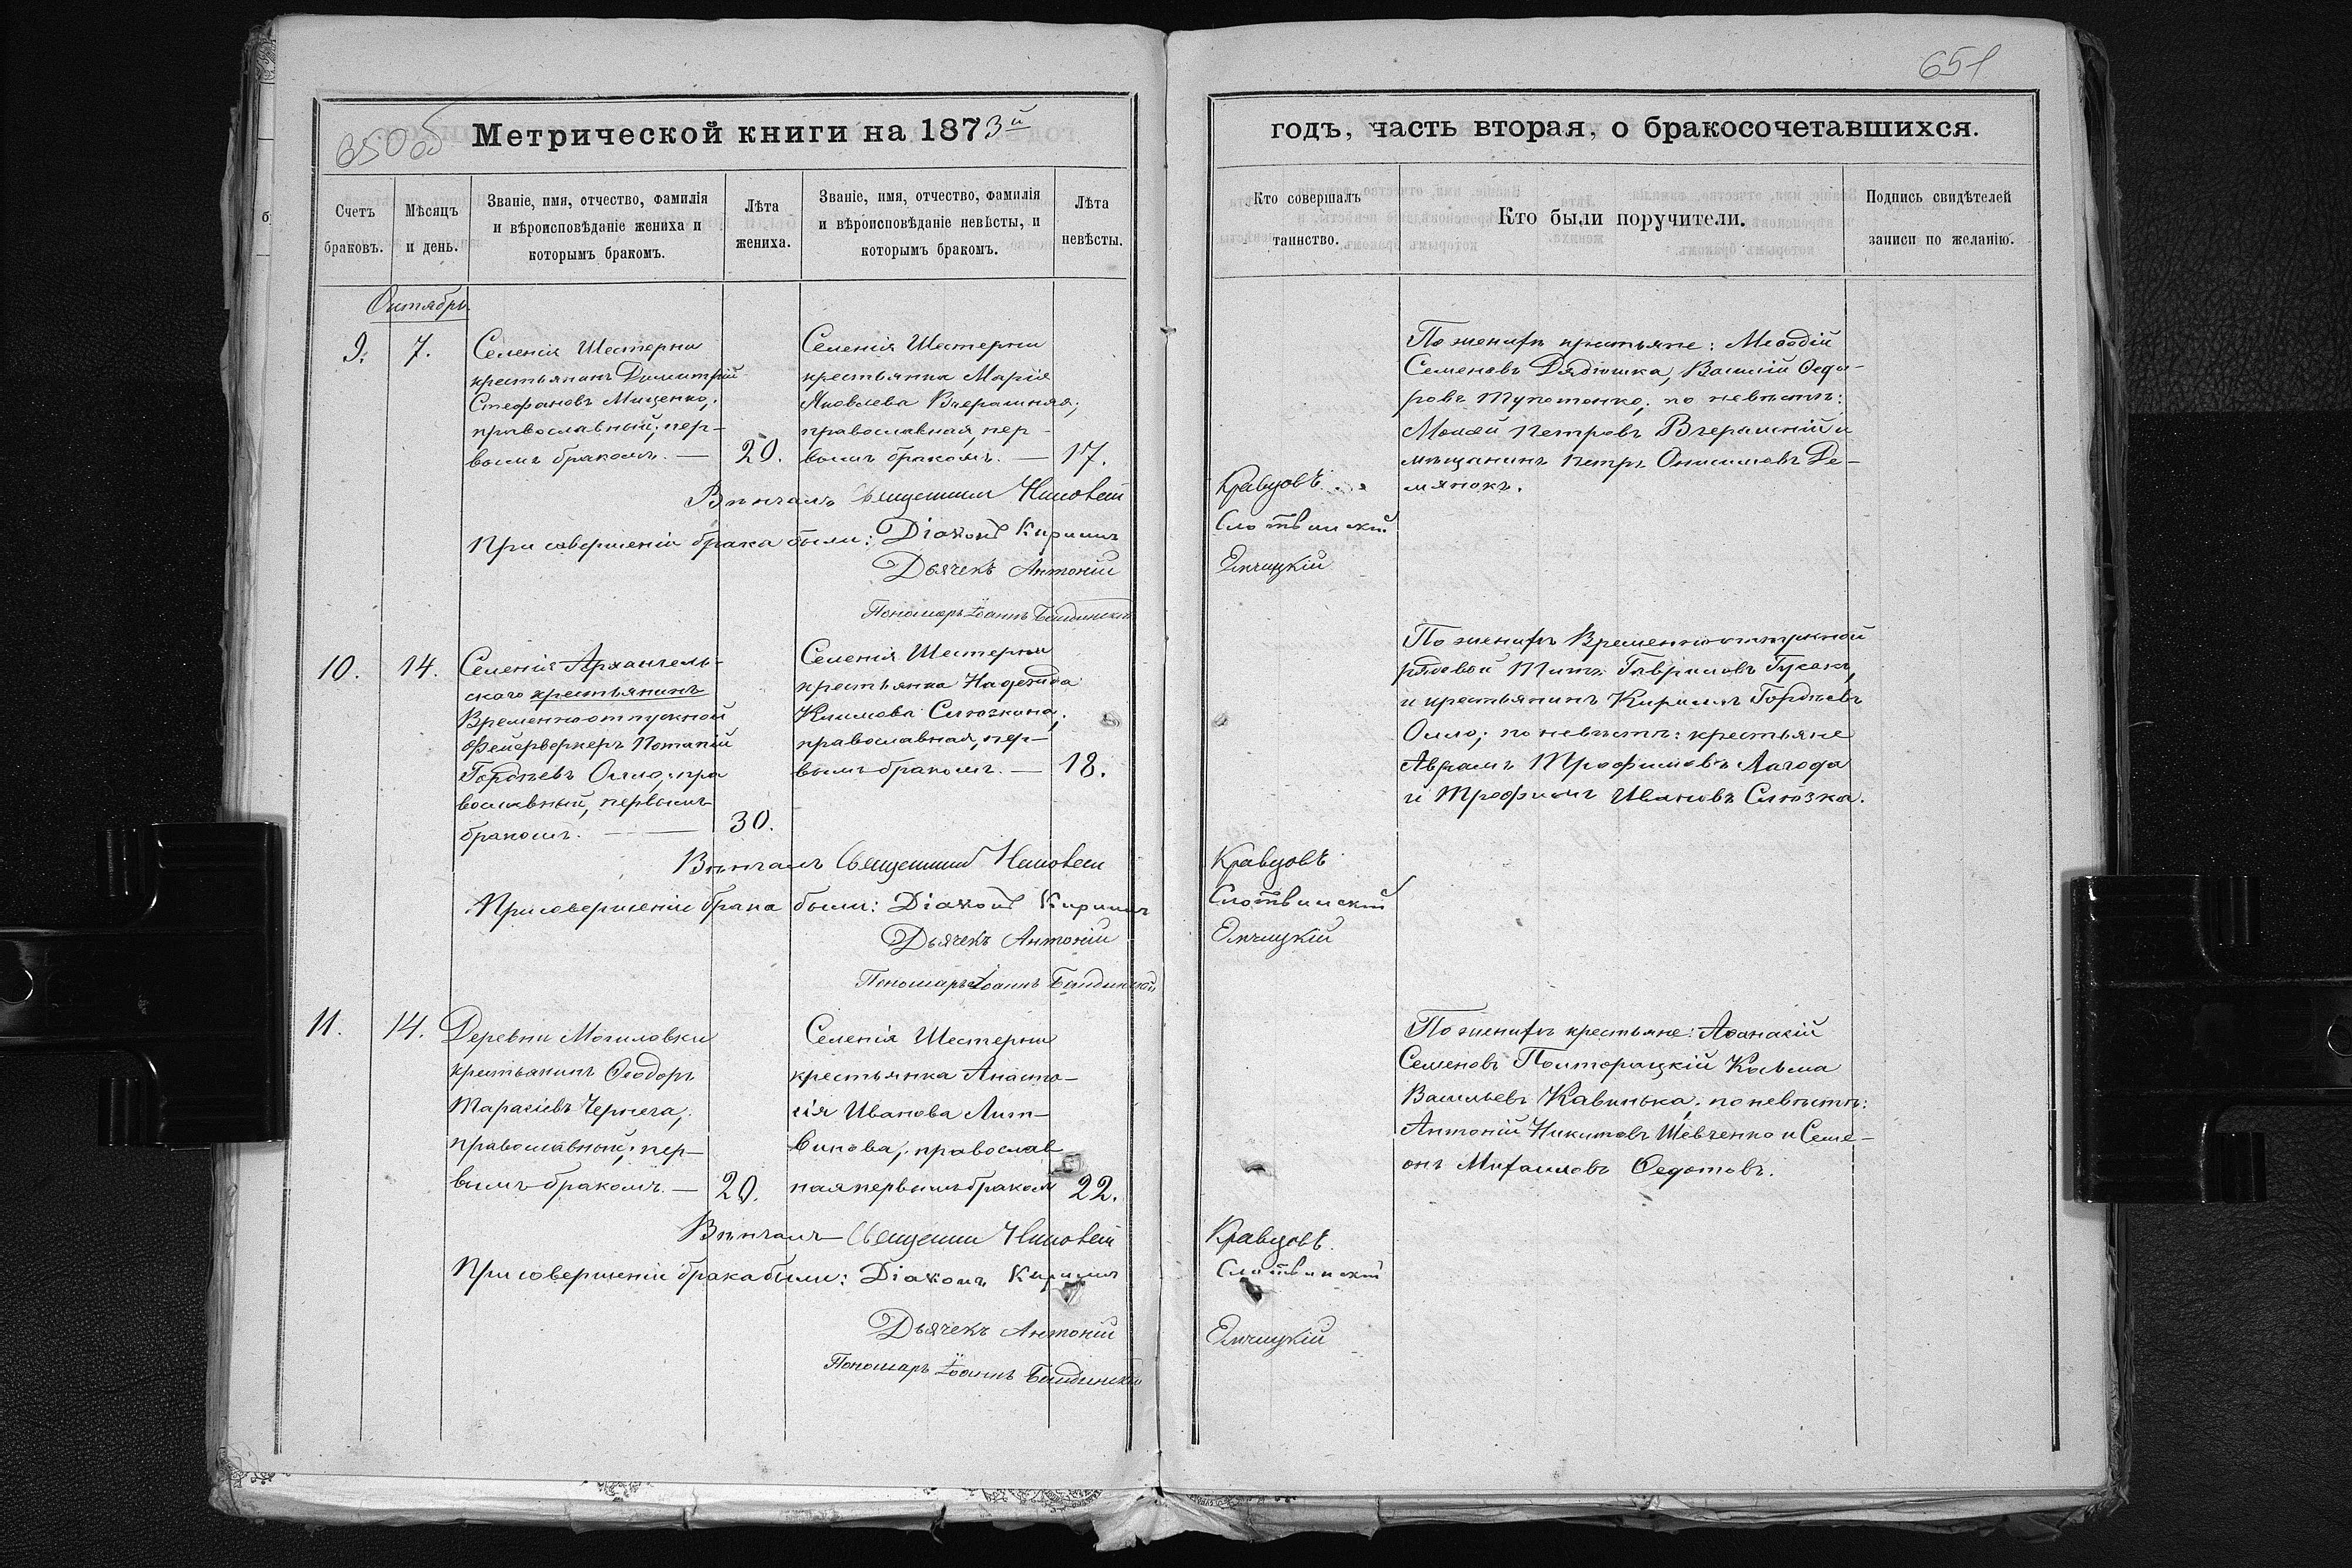 651
650 об
Метрической книги на 1873й
годъ, часть вторая, о бракосочетавшихся.
Счетъ браковъ.
Мѣсяцъ и день.
Званіе, имя, отчество, фамилія
и вѣроисповѣданіе жениха и
которымъ бракомъ.
Лѣта жениха.
Званіе, имя, отчество, фамилія
и вѣроисповѣданіе невѣсты, и
которымъ бракомъ.
Лѣта невѣсты.
Кто совершалъ
таинство.
Кто были поручители.
Подпись свидѣтелей
записи по желанію.
Октябрь
9.
7.
Селенія Шестерни
крестьянинъ Димитрій
Стефановъ Мищенко,
православный, пер-
вымъ бракомъ. —
20.
Селенія Шестерни
крестьянка Марія
Яковлева Вчерашняя,
православная, пер-
вымъ бракомъ. —
17.
По женихѣ крестьяне: Меѳодій
Семеновъ Дядюшка, Василій Ѳедо-
ровъ Тупотенко; по невѣстѣ:
Моисей Петровъ Вчерашній и
мѣщанинъ Петръ Онисимовъ Де-
мянокъ.
Вѣнчалъ Священникъ Кравцовъ
При совершеніи брака были: Діаконъ Кирилъ Слотвинскій
Дьячекъ Антоній Ельчицкій
Пономарь Іоаннъ
10.
14.
Селенія Архангель-
скаго крестьянинъ
Временноотпускной
Фейерверкеръ Потапій
Гордѣевъ Олло, пра
вославный, первымъ
бракомъ. —
30.
Селенія Шестерни
крестьянка Надежда
Климова Слюзкина,
православная, пер-
вымъ бракомъ. —
18.
По женихѣ Временноотпускной
рядовой Титъ Гавриловъ Гусакъ,
и крестьянинъ Кирилъ Гордѣевъ
Олло; по невѣстѣ: крестьяне
Аврамъ Трофимовъ Лагода
и Трофимъ Ивановъ Слюзка.
Вѣнчалъ Священникъ Кравцовъ
При совершеніи брака были: Діаконъ Кирилъ Слотвинскій
Дьячекъ Антоній Ельчицкій
Пономарь Іоаннъ
11.
14.
Деревни Могиловки
крестьянинъ Ѳеодоръ
Тарасіевъ Чернега,
православный, пер-
вымъ бракомъ. —
20.
Селенія Шестерни
крестьянка Анаста-
сія Иванова Лит-
винова, православ
ная первымъ бракомъ
22.
По женихѣ крестьяне: Аѳанасій
Семеновъ Полторацкій Косьма
Васильевъ Кавинька, по невѣстѣ:
Антоній Никитовъ Шевченко и Семе-
онъ Михаиловъ Ѳедотовъ.
Вѣнчалъ Священникъ Кравцовъ.
При совершеніи брака были: Діаконъ Кирилъ Слотвинскій
Дьячекъ Антоній Ельчицкій
Пономарь Іоаннъ